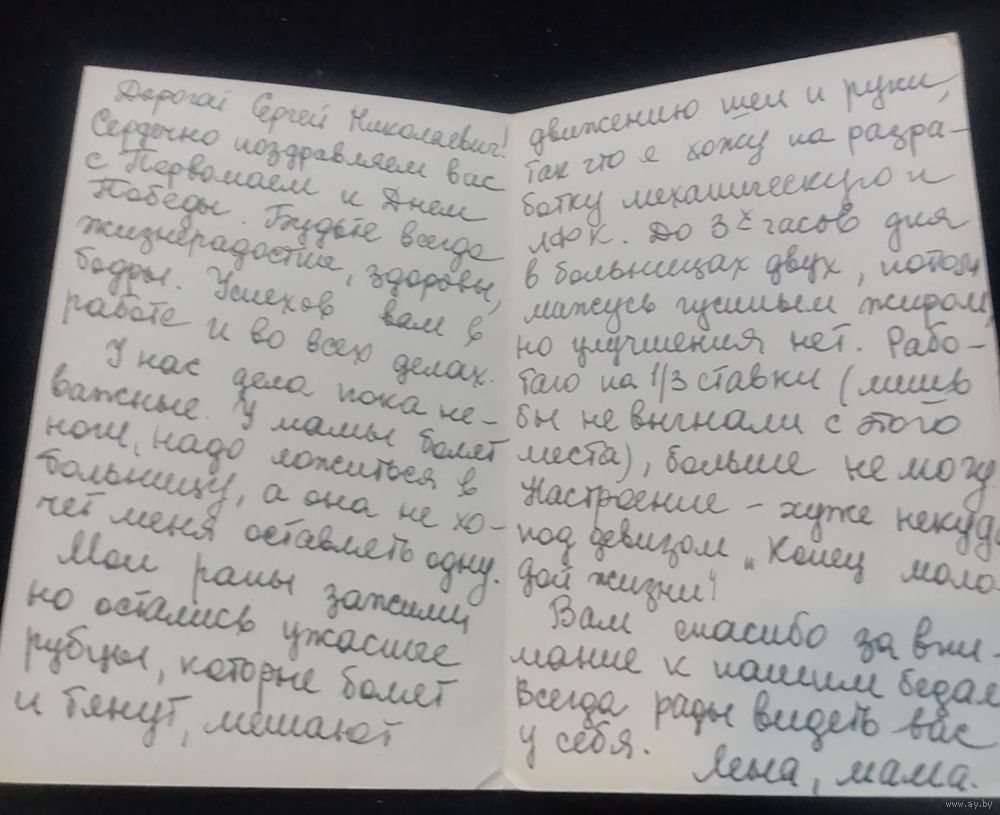 Дорогой Сергей Николаевич!
Сердечно поздравляем вас
с Первомаем и Днем
Победы. Будьте всегда
жизнерадостны, здоровы,
бодры. Успехов вам в
работе и во всех делах.
У нас дела пока не-
важные. У мамы болят
ноги, надо ложиться в
больницу, а она не хо-
чет меня оставлять одну.
Мои раны зажили
но остались ужасные
рубцы, которые болят
и тянут, мешают
движению шеи и руки,
так что я хожу на разра-
ботку механическую и
ЛФК. До 3х часов дня
в больницах двух, потом
мажусь гусиным жиром,
но улучшения нет. Рабо-
таю на 1/3 ставки (лишь
бы не выгнали с этого
места), больше не могу.
Настроение – хуже некуда
под девизом „Конец моло-
дой жизни"
Вам спасибо за вни-
мание к нашим бедам
Всегда рады видеть вас
у себя.
Лена, мама.
www.ay.by